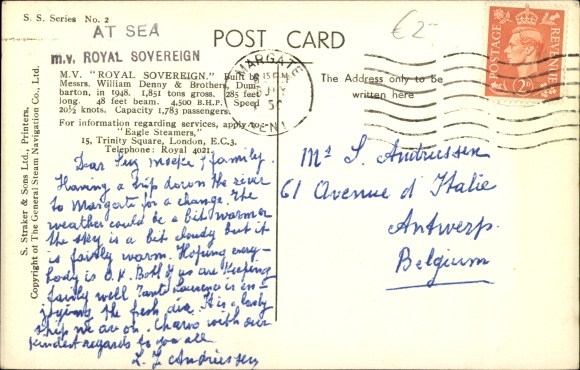 S. S. Series No. 2
AT SEA
m.v. ROYAL SOVEREIGN
POST CARD
€2-
M.V. "ROYAL SOVEREIGN." Built by
Messrs. William Denny & Brothers, Dum-
barton, in 1948. 1,851 tons gross. 285 feet
long. 48 feet beam. 4,500 B.H.P. Speed
20½ knots. Capacity 1,783 passengers.
For information regarding services, apply to:-
"Eagle Steamers,"
15, Trinity Square, London, E.C.3.
Telephone: Royal 4021.
S. Straker & Sons Ltd., Printers.
Copyright of The General Steam Navigation Co., Ltd.
MARGATE
KENT
POSTAGE
REVENUE
2D
The Address only to be
written here
Dear & family.
Having a trip down the river
to Margate for a change. The
weather could be a bit warmer
the sky is a bit cloudy but it
is fairly warm. Hoping every-
body is O.K. Both of us are keeping
fairly well Tante is en-
joying the fresh air. It is a lovely
ship we are on. with our
kindest regards to you all
L. Andriessen
Andriessen
61 Avenue d'Italie
Antwerp.
Belgium